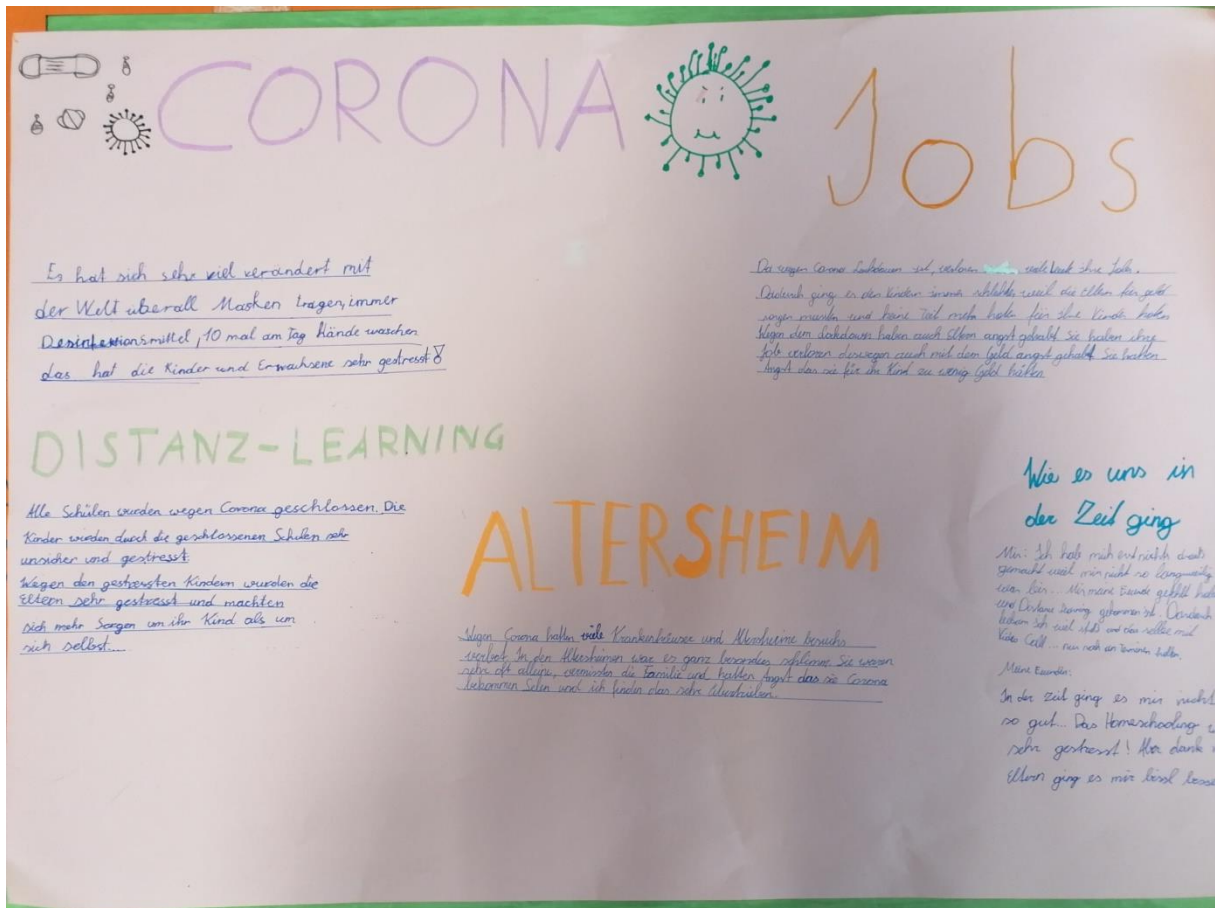 CORONA
Es hat sich sehr viel verändert mit
der Welt überall Masken tragen, immer
Desinfektionsmittel, 10 mal am Tag Hände waschen
das hat die Kinder und Erwachsene sehr gestresst!
Jobs
Da wegen Corona Lockdown viele Leute ihre Jobs.
Dadurch ging es den Kindern immer schlechter weil die Eltern für geld
sorgen mussten und keine Zeit mehr für ihre Kinder hatten
Wegen dem Lockdown haben auch Eltern angst gehabt Sie haben ihre
Jobs verloren deswegen auch mit dem Geld angst gehabt Sie hatten
Angst das sie für ihr Kind zu wenig Geld hätten
DISTANZ-LEARNING
Alle Schulen wurden wegen Corona geschlossen. Die
Kinder wurden durch die geschlossenen Schulen sehr
unsicher und gestresst.
Wegen den gestressten Kindern wurden die
Eltern sehr gestresst und machten
sich mehr Sorgen um ihr Kind als um
sich selbst....
ALTERSHEIM
Wegen Corona hatten viele Krankenhäuser und Altersheime besuchs
verbot. In den Altersheimen war es ganz besonders schlimm. Sie waren
sehr oft alleine, vermissten die Familie und hatten Angst das sie Corona
bekommen und ich finden das sehr
Wie es uns in
der Zeit ging
Mir: Ich hab mich erst nichts
gemacht weil mir nicht so langweilig
war bis... Mir meine Freunde gefehlt
und Distance learning gekommen ist. Dadurch
ich viel und das selbe mit
Video Call... nur noch an
Meine Freundin:
In der Zeit ging es mir nicht
so gut... Das Homeschooling
sehr gestresst! Aber dank
Eltern ging es mir bissl